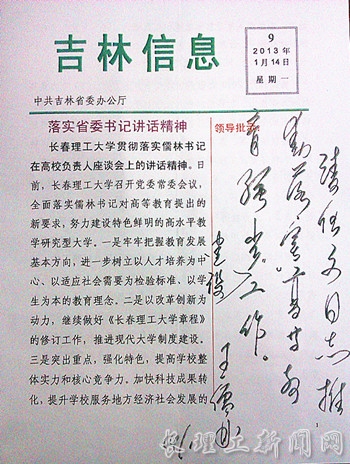 吉林信息
9
2013年
1月14日
星期一
中共吉林省委办公厅
落实省委书记讲话精神
长春理工大学贯彻落实儒林书记
在高校负责人座谈会上的讲话精神。日
前，长春理工大学召开党委常委会议，
全面落实儒林书记对高等教育提出的
新要求，努力建设特色鲜明的高水平教
学研究型大学。一是牢牢把握教育发展
基本方向，进一步树立以人才培养为中
心、以适应社会需要为检验标准、以学
生为本的教育理念。二是以改革创新为
动力，继续做好《长春理工大学章程》
的修订工作，推进现代大学制度建设。
三是突出重点，强化特色，提高学校整
体实力和核心竞争力。加快科技成果转
化，提升学校服务地方经济社会发展的
领导批示：
同志推
动落实高等教
育强省
建设工作。
王儒林
1
长理工新闻网